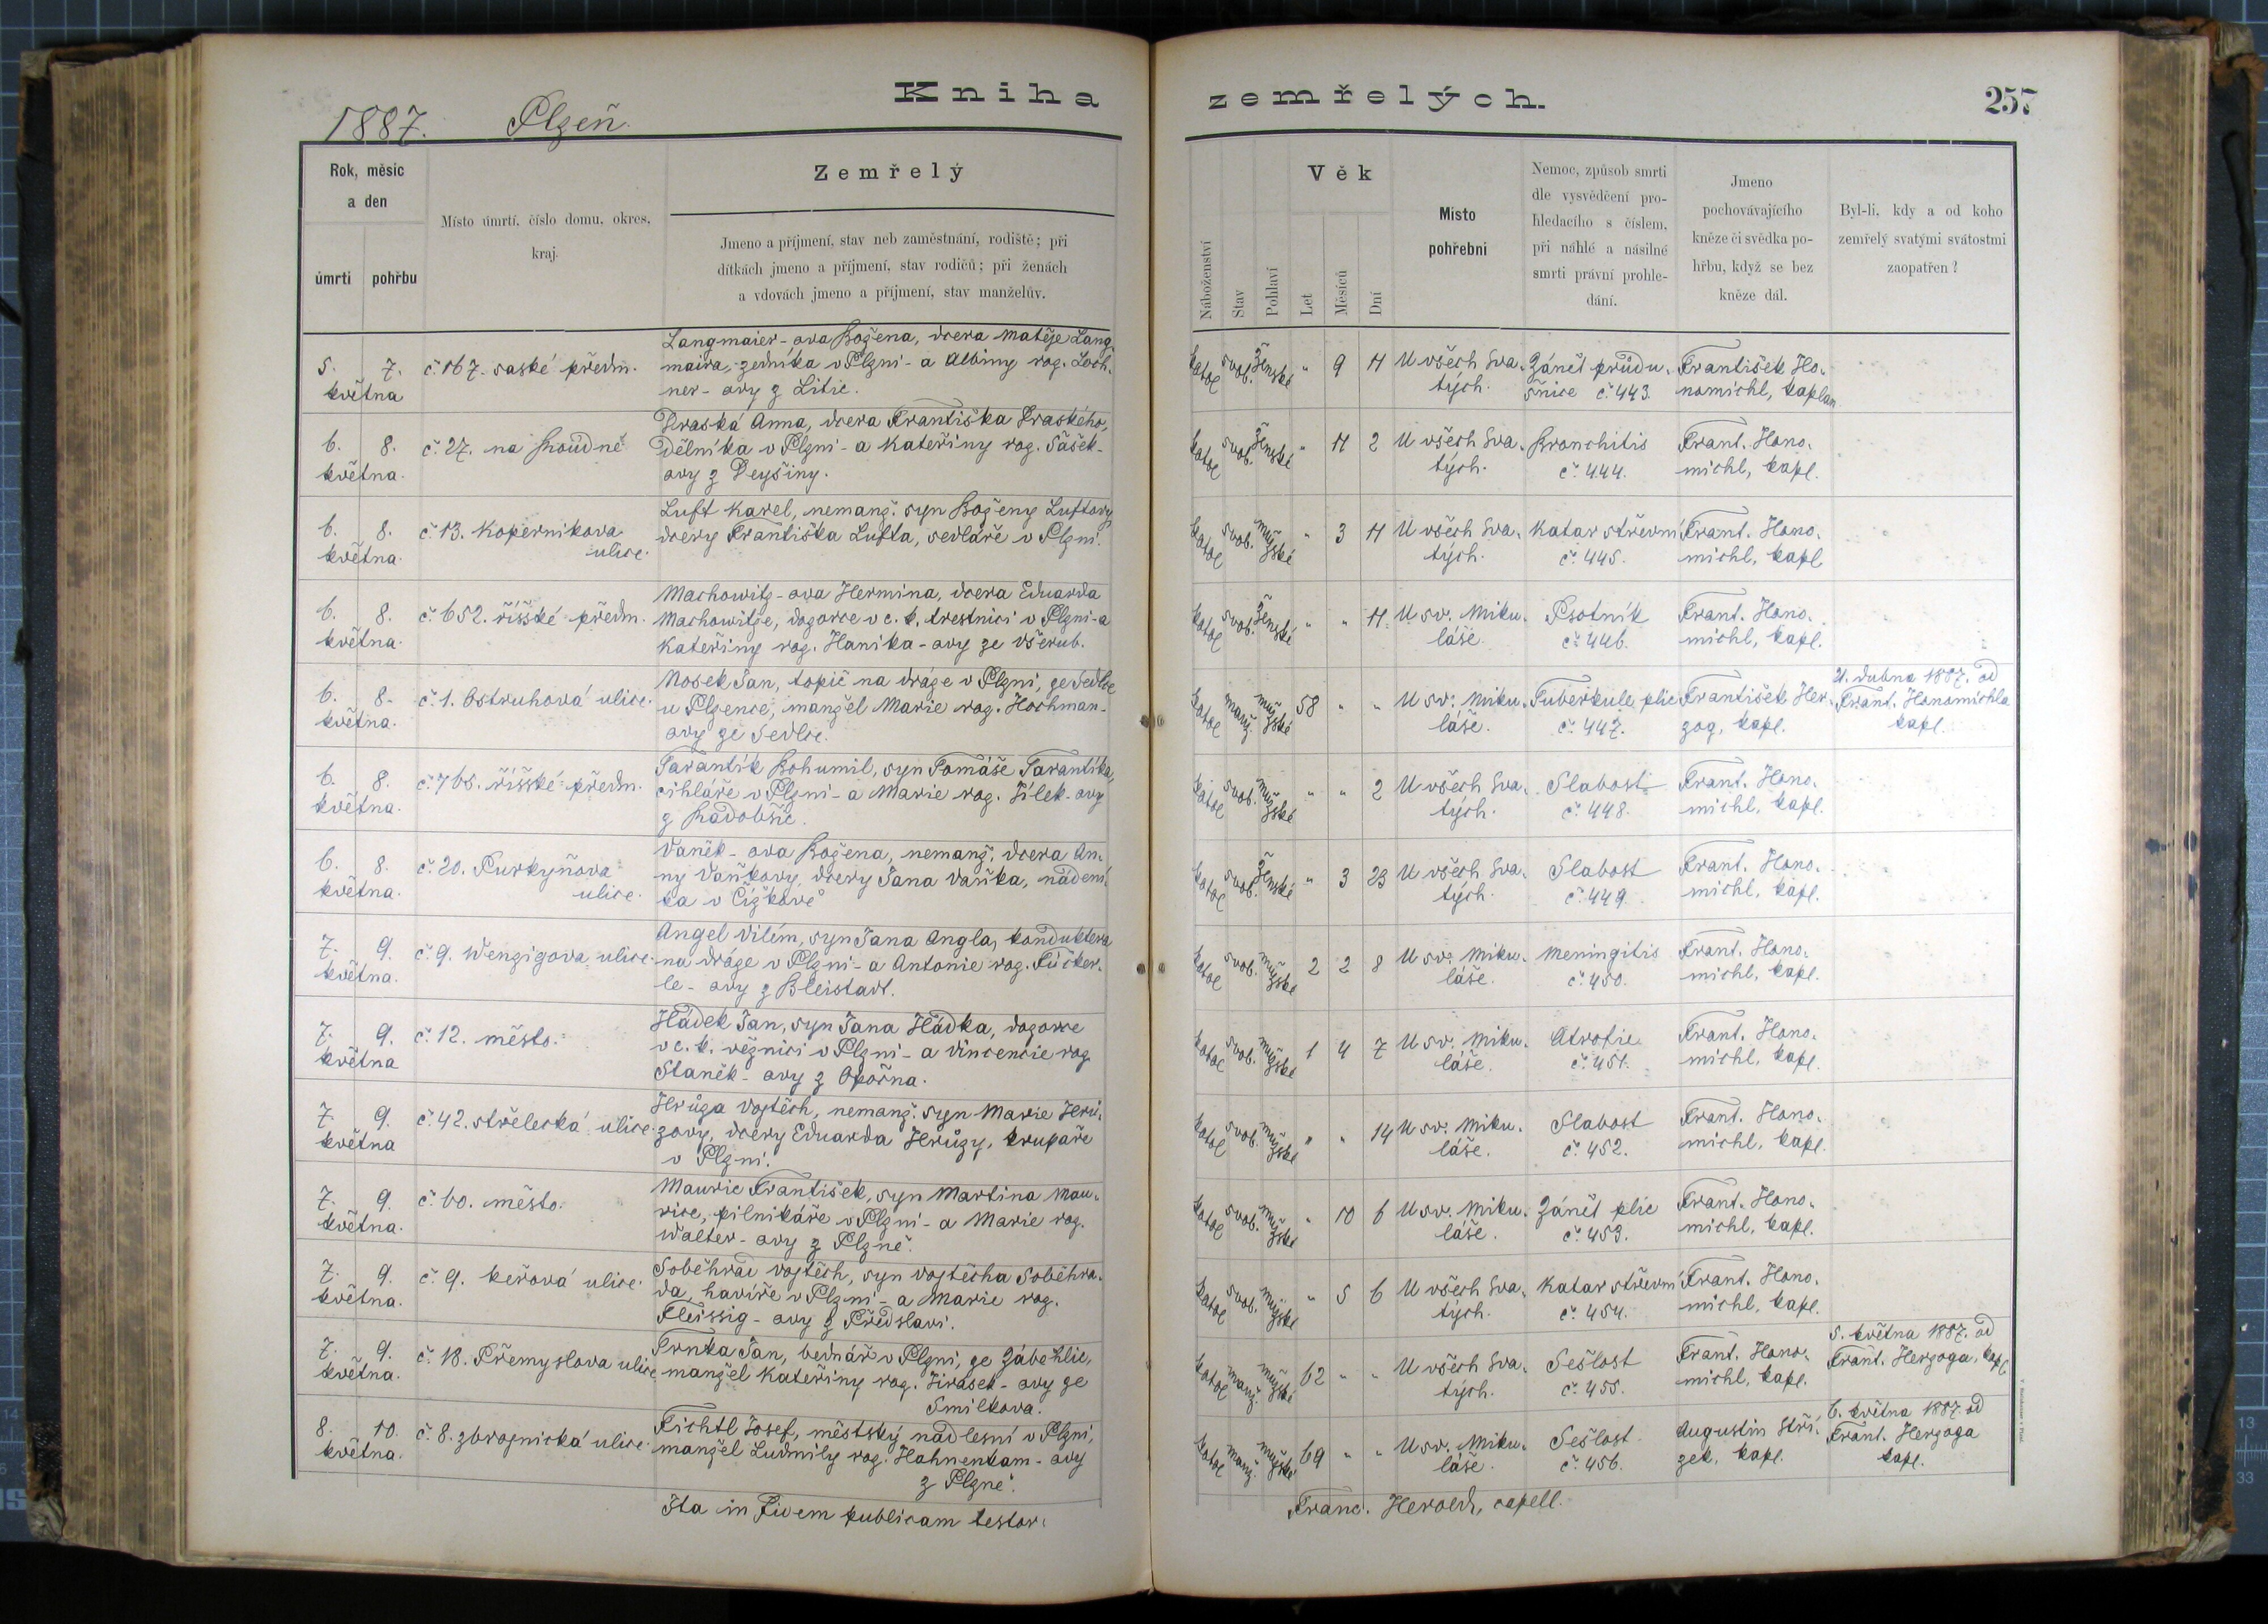 Kniha zemřelých.
257
1887. Plzeň.
Rok, měsíc
a den
úmrtí
pohřbu
Místo úmrtí, číslo domu, okres,
kraj.
Zemřelý
Jmeno a příjmení, stav neb zaměstnání, rodiště; při
dítkách jmeno a příjmení, stav rodičů; při ženách
a vdovách jmeno a příjmení, stav manželův.
Náboženství
Stav
Pohlaví
Věk
Let
Měsíců
Dní
Místo
pohřební
Nemoc, způsob smrti
dle vysvědčení pro-
hledacího s číslem,
při náhlé a násilné
smrti právní prohle-
dání.
Jmeno
pochovávajícího
kněze či svědka po-
hřbu, když se bez
kněze dál.
Byl-li, kdy a od koho
zemřelý svatými svátostmi
zaopatřen?
5. 7.
května
č. 167. saské předm.
Langmaier-ova Božena, dcera Matěje Lang-
maira, zedníka v Plzni - a Albiny roz. Loch-
ner-ovy z Litic.
katol svob. ženské " 9 11
U všech Sva-
tých.
Zánět průdu-
šnice č. 443.
František Ho-
nomichl, kaplan
6. 8.
května.
č. 27. na Roudné
Draská Anna, dcera Františka Draského,
dělníka v Plzni - a Kateřiny roz. Sášek-
ovy z Deyšiny.
katol svob. ženské " 11 2
U všech Sva-
tých.
Bronchitis
č. 444.
Frant. Hono-
michl, kapl.
6. 8.
května.
č. 13. Koperníkova
ulice.
Luft Karel, nemanž. syn Boženy Luftovy
dcery Františka Lufta, sedláře v Plzni.
katol svob. mužské " 3 11
U všech Sva-
tých.
Katar střevní
č. 445.
Frant. Hono-
michl, kapl
6. 8.
května.
č. 652. říšské předm.
Machowitz-ova Hermina, dcera Eduarda
Machowitze, dozorce v c. k. trestnici v Plzni - a
Kateřiny roz. Hanika-ovy ze Všerub.
katol svob. ženské " " 11
U sv. Miku-
láše.
Psotník
č. 446.
Frant. Hono-
michl, kapl.
6. 8.
května.
č. 1. Ostruhová ulice.
Mosek Jan, topič na dráze v Plzni, ze Sedlce
u Plzence, manžel Marie roz. Hochman-
ovy ze Sedlce.
katol manž. mužské 58 " "
U sv. Miku-
láše.
Tuberkule plic
č. 447.
František Her-
zog, kapl.
21. dubna 1887. od
Frant. Honomichla
kapl.
6. 8.
května.
č. 765. říšské předm.
Tarantík Bohumil, syn Tomáše Tarantíka,
cihláře v Plzni - a Marie roz. Jílek-ovy
z Radobšic.
katol svob. mužské " " 2
U všech Sva-
tých.
Slabost
č. 448.
Frant. Hono-
michl, kapl.
6. 8.
května.
č. 20. Purkyňova
ulice.
Vaněk-ova Božena, nemanž. dcera An-
ny Vaňkovy, dcery Jana Vaňka, nádení-
ka v Čížkově
katol svob. ženské " 3 23
U všech Sva-
tých.
Slabost
č. 449.
Frant. Hono-
michl, kapl.
7. 9.
května.
č. 9. Wenzigova ulice.
Angel Vilém, syn Jana Angla, konduktera
na dráze v Plzni - a Antonie roz. Tücker-
le-ovy z Bleistadt.
katol svob. mužské 2 2 8
U sv. Miku-
láše.
Meningitis
č. 450.
Frant. Hono-
michl, kapl.
7. 9.
května
č. 12. město.
Hádek Jan, syn Jana Hádka, dozorce
v c. k. věznici v Plzni - a Vincencie roz.
Staněk-ovy z Opočna.
katol svob. mužské 1 4 7
U sv. Miku-
láše.
Atrofie
č. 451.
Frant. Hono-
michl, kapl.
7. 9.
května
č. 42. střelecká ulice.
Hrůza Vojtěch, nemanž. syn Marie Hrů-
zovy, dcery Eduarda Hrůzy, krupaře
v Plzni.
katol svob. mužské " " 14
U sv. Miku-
láše.
Slabost
č. 452.
Frant. Hono-
michl, kapl.
7. 9.
května.
č. 60. město.
Mauric František, syn Martina Mau-
rice, pilnikáře v Plzni - a Marie roz.
Walter-ovy z Plzně.
katol svob. mužské " 10 6
U sv. Miku-
láše.
Zánět plic
č. 453.
Frant. Hono-
michl, kapl.
7. 9.
května.
č. 9. keřová ulice.
Soběhrad Vojtěch, syn Vojtěcha Soběhra-
da, havíře v Plzni - a Marie roz.
Fleissig-ovy z Předslavi.
katol svob. mužské " 5 6
U všech Sva-
tých.
Katar střevní
č. 454.
Frant. Hono-
michl, kapl.
7. 9.
května.
č. 18. Přemyslova ulice
Trnka Jan, bednář v Plzni, ze Záběhlic,
manžel Kateřiny roz. Jirásek-ovy ze
Smilkova.
katol manž. mužské 62 " "
U všech Sva-
tých.
Sešlost
č. 455.
Frant. Hono-
michl, kapl.
5. května 1887. od
Frant. Herzoga, kapl.
8. 10.
května.
č. 8. zbrojnická ulice.
Fichtl Josef, městský nadlesní v Plzni,
manžel Ludmily roz. Hahnenkam-ovy
z Plzně.
katol manž. mužské 69 " "
U sv. Miku-
láše.
Sešlost
č. 456.
Augustin Stří-
zek, kapl.
6. května 1887 od
Frant. Herzoga
kapl.
Ita in Fidem publicam testor:
Franc. Herold, capell.